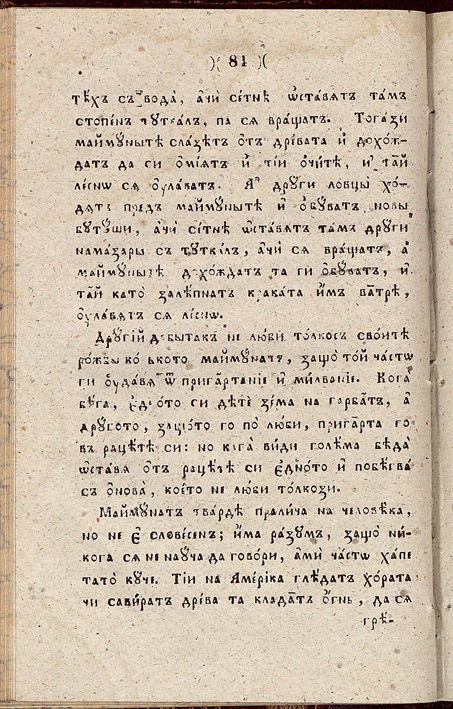 )( 81 )(
тѣхъ съ вода, ачи сетнѣ ѡставятъ тамъ
стопенъ туткалъ, па ся вращатъ. Тогази
маймꙋнытѣ слазѣтъ отъ древата и дохож-
датъ да си омїятъ и тїи очитѣ, и тай
леснѡ ся ѹлаватъ. Я҆ дрꙋги ловцы хо-
дятъ предъ маймꙋнытѣ и обꙋватъ новы
бꙋтꙋши, ачи сетнѣ ѡставятъ тамъ дрꙋги
намазары съ тꙋткалъ, ачи ся вращатъ, а
маймꙋнытѣ дохождатъ та ги обꙋватъ, и
тай като залѣпнатъ краката имъ ватрѣ,
ѹлавятъ ся леснѡ.
Дрꙋгїй добытакъ не люби толкось своитѣ
рожбы колькото маймꙋнатъ, защо той частѡ
ги ѹдавя ѿ пригартанїе и милванїе. Кога
бѣга, едното си дѣте зема на гарбатъ, а
дрꙋгото, защото го по люби, пригарта го
въ рацѣтѣ си: но кага види голѣма бѣда
ѡставя отъ рацѣтѣ си едното и побѣгва
съ онова, което не люби толкози.
Маймꙋнатъ твардѣ пралича на человѣка,
но не є словесенъ; има разꙋмъ, защо ни-
кога ся не наꙋча да говори, ами частѡ хапе
тато кꙋче. Тїи на Америка глѣдатъ хората
чи савиратъ древа та кладатъ огнь, да ся
грѣ-